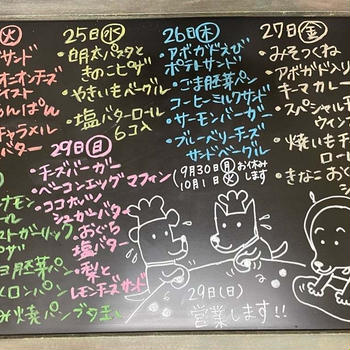 火
サンド
オニオンチーズ
イスト
あんぱん
キャラメル
バター
25日水
・明太パスタと
きのこピザ
・やきいもベーグル
・塩バターロール
6コ入
26日木
・アボガドえび
ポテトサンド
・ごま胚芽パン
コーヒーミルクサンド
・サーモンバーガー
・ブルーベリーチーズ
サンドベーグル
27日金
・みそつくね
・アボガド入り
キーマカレー
・スペシャル
ウィン
・焼いもチ
ロール
・きなこおぐ
シ
29日日
・チーズバーガー
・ベーコンエッグマフィン
・ココナッツ
シュガーバター
・おぐら
塩バター
・梨と
レモンチーズサンド
9月30日月
10月1日火
お休み
します
シナモン
ール
ストガーリック
ピザ
胚芽パン
メロンパン
み焼パンブタ玉
29日(日)
営業します!!